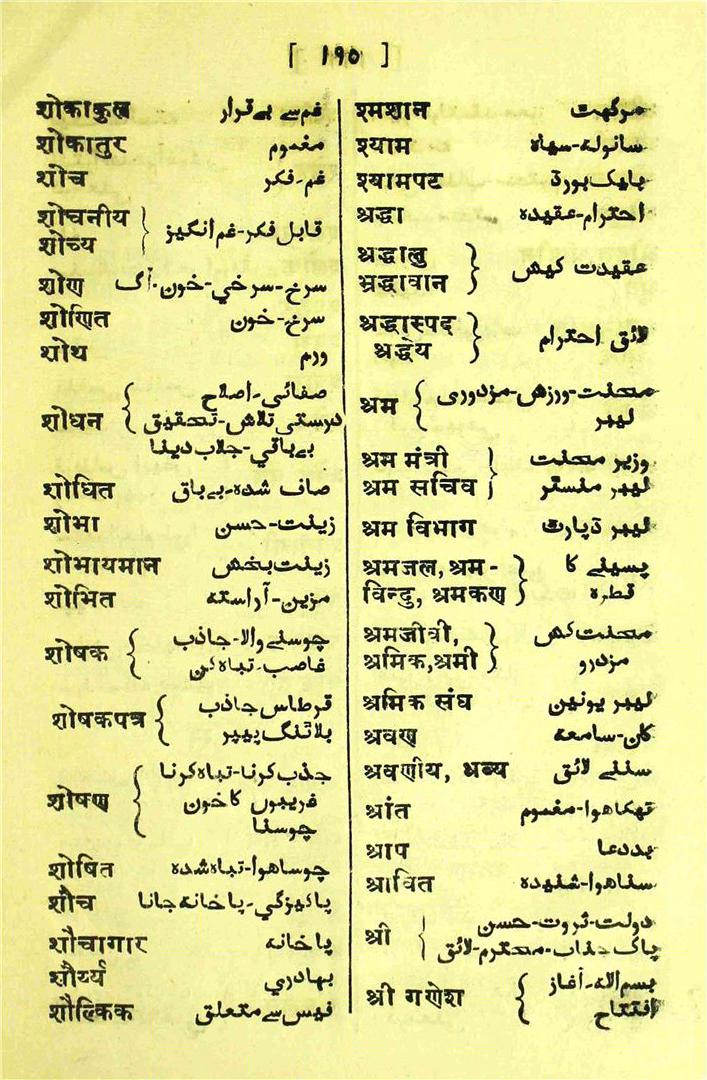 [ ۱۹۵ ]
शोकाकुल غم سے بے قرار
शोकातुर مغموم
शोच غم-فکر
शोचनीय
शोच्य } قابل فکر-غم انگیز
शोण سرخ-سرخي-خون-آگ
शोणित سرخ-خون
शोथ ورم
शोधन { صفائي-اصلاح
درستي تلاش-تحقیق
بے باقي-جلاب دینا
शोधित صاف شدہ-بے باق
शोभा زینت-حسن
शोभायमान زینت بخش
शोभित مزین-آراستہ
शोषक { چوسنے والا-جاذب
غاصب-تباہ کن
शोषकपत्र { قرطاس جاذب
بلاٹنگ پیپر
शोषण { جذب کرنا-تباہ کرنا
غریبوں کا خون
چوسنا
शोषित چوسا ہوا-تباہ شدہ
शौच پاکیزگي-پاخانہ جانا
शौचागार پاخانہ
शौर्य्य بہادري
शौल्किक فیس سے متعلق
श्मशान مرگھت
श्याम سانولہ-سیاہ
श्यामपट بلیک بورڈ
श्रद्धा احترام-عقیدہ
श्रद्धालु
श्रद्धावान } عقیدت کیش
श्रद्धास्पद
श्रद्धेय } لائق احترام
श्रम { محنت-ورزش-مزدوری
لیبر
श्रम मंत्री } وزیر محنت
श्रम सचिव لیبر منسٹر
श्रम विभाग لیبر ڈپارٹ
श्रमजल, श्रम- } پسینے کا
विन्दु, श्रमकण قطرہ
श्रमजीवी, } محنت کش
श्रमिक, श्रमी مزدرو
श्रमिक संघ لیبر یونین
श्रवण کان-سامعہ
श्रवणीय, श्रव्य سننے لائق
श्रांत تھکا ہوا-مغموم
श्राप بددعا
श्रावित سنا ہوا-شنیدہ
श्री { دولت-ثروت-حسن
پاک جذاب-محترم-لائق
श्री गणेश { بسم اللہ-آغاز
افتتاح